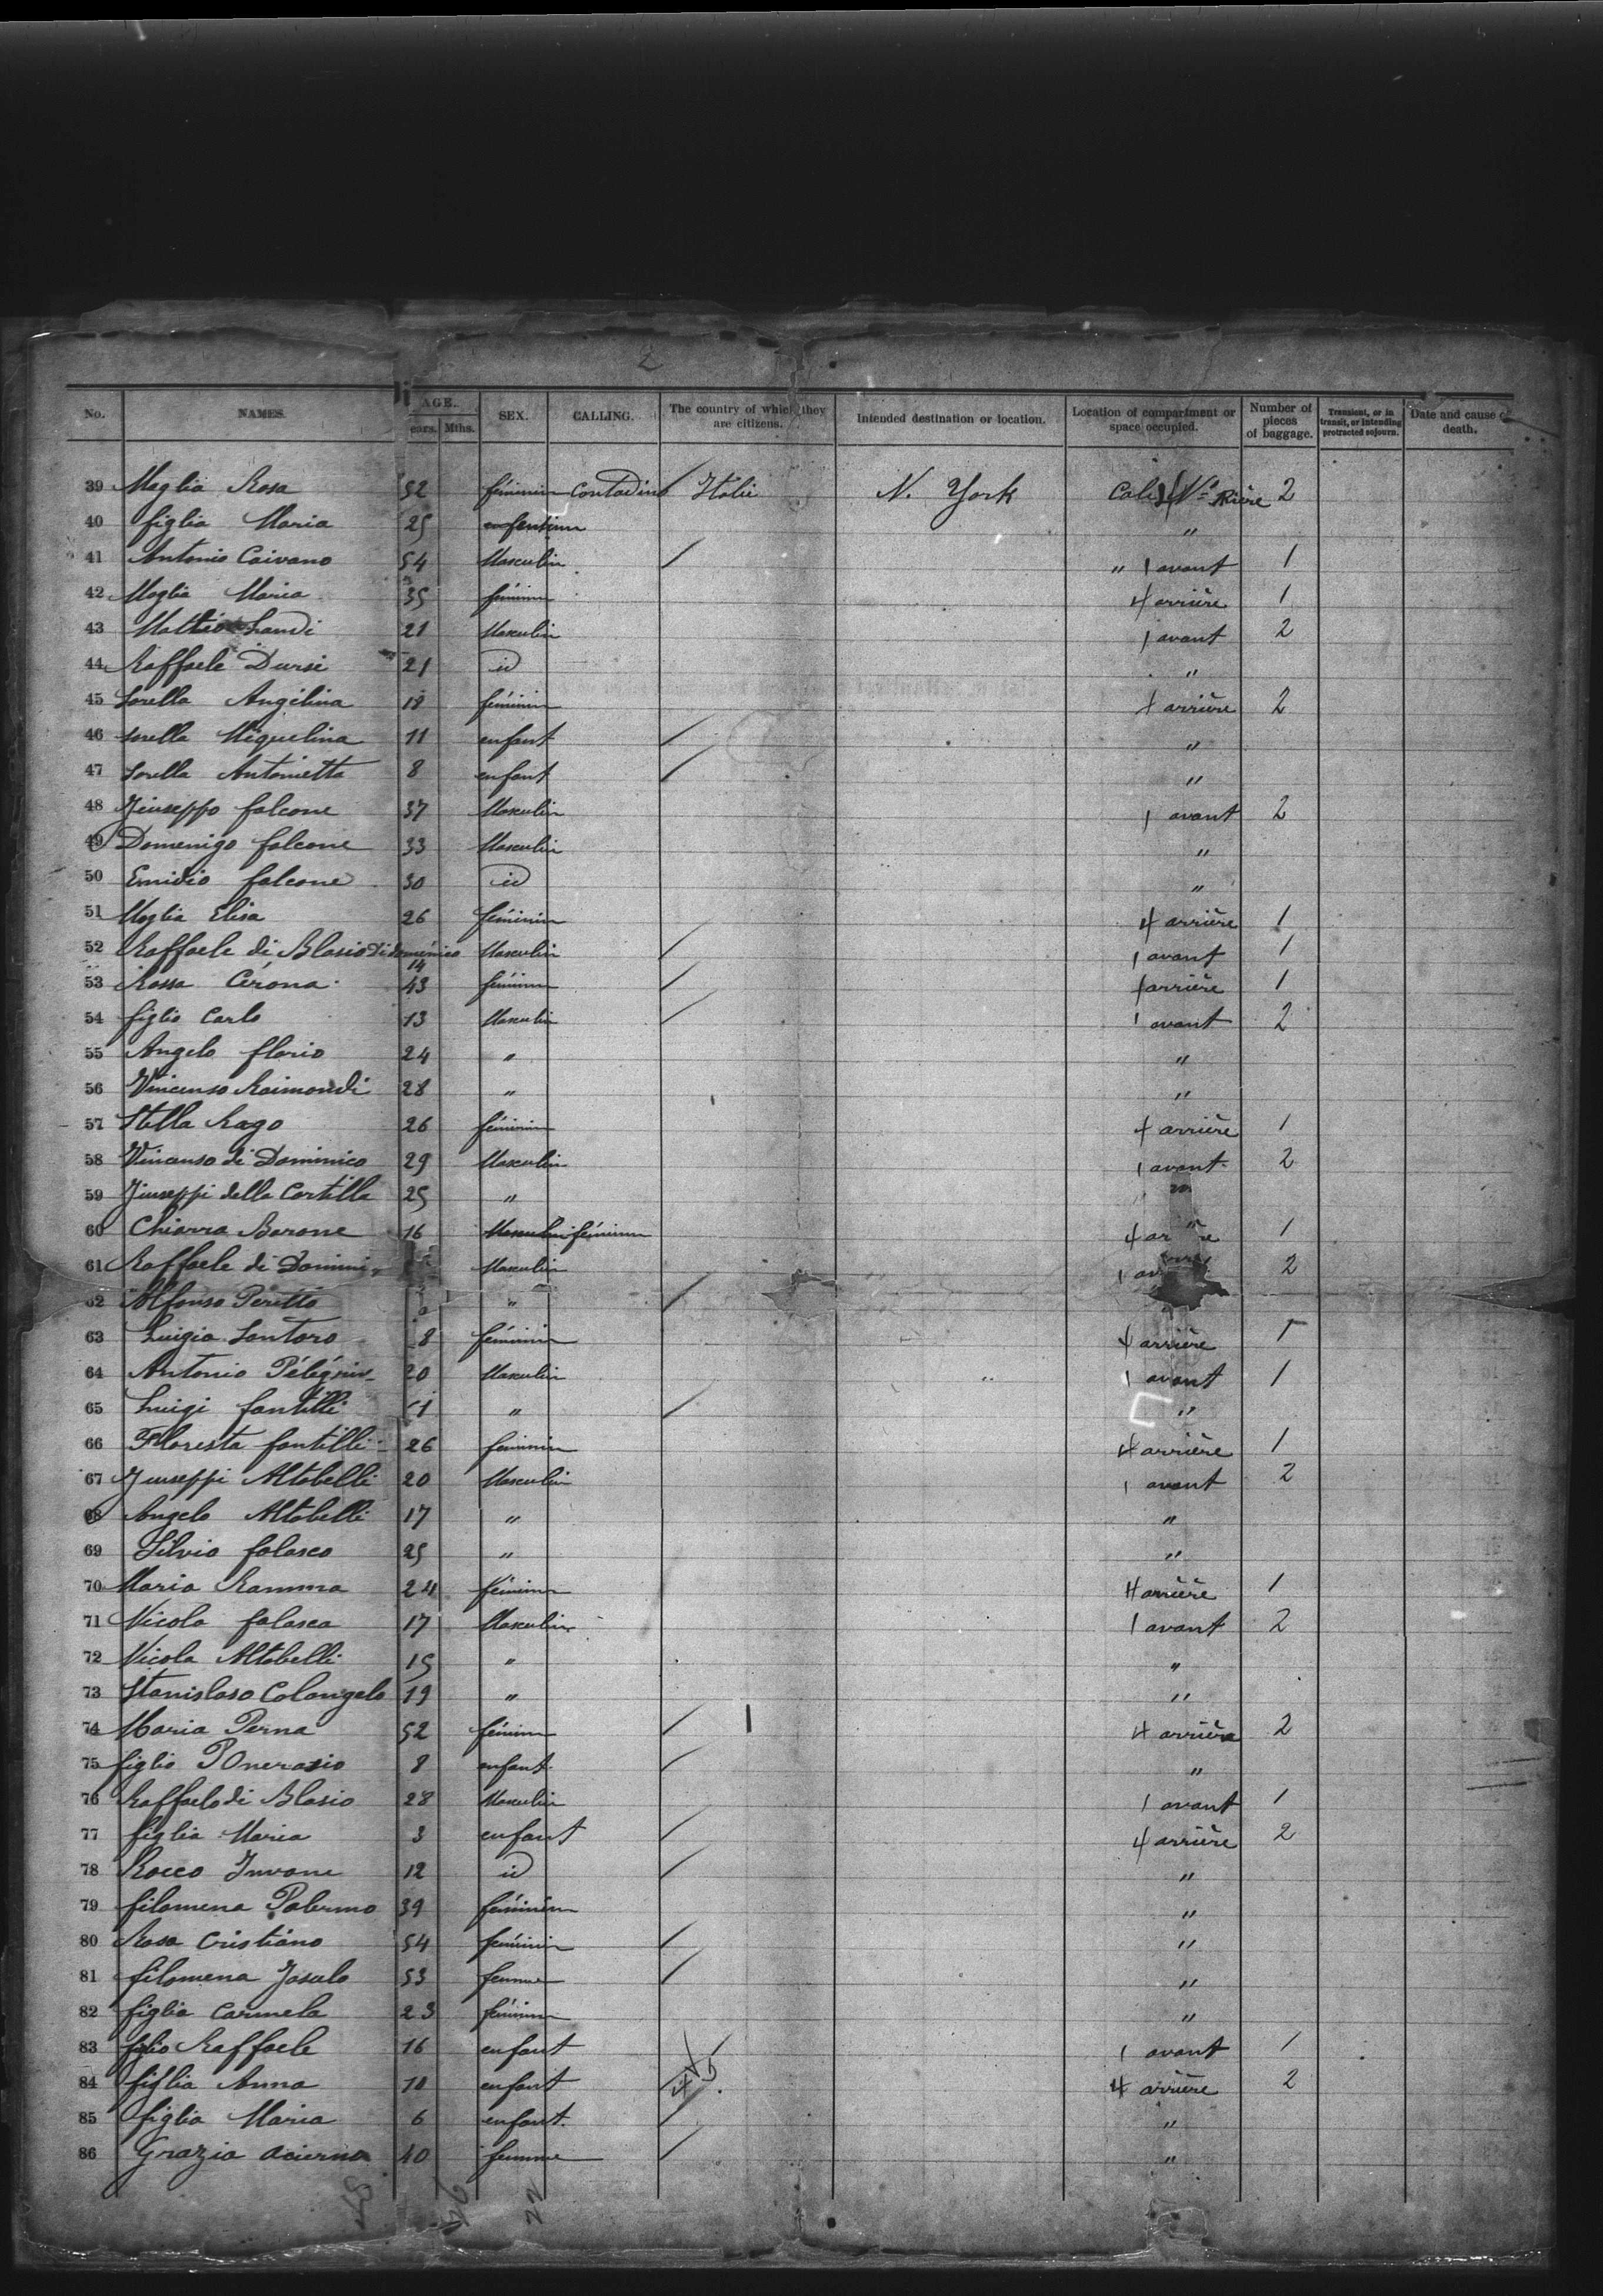 2
No. NAMES. AGE. SEX. CALLING. The country of which they are citizens. Intended destination or location. Location of compartment or space occupied. Number of pieces of baggage. Transient, or in transit, or intending protracted sojourn. Date and cause of death.
ears. Mths.
39 Moglia Rosa 52 féminin Contadino Italie N. York Cale 4 No Rière 2
40 figlia Maria 25 "
41 Antonio Caivano 54 Masculin " 1 avant 1
42 Moglia Maria 35 féminin 4 arrière 1
43 Matteo Landi 21 Masculin 1 avant 2
44 Raffaele Dursi 21 id "
45 Sorella Angélina 18 féminin 4 arrière 2
46 sorella Miquelina 11 enfant "
47 Sorella Antonietta 8 enfant "
48 Giuseppo falcone 37 Masculin 1 avant 2
49 Domenigo falcone 33 Masculin "
50 Emidio falcone 30 id "
51 Moglia Elisa 26 féminin 4 arrière 1
52 Raffaele di Blasio di doménico 14 Masculin 1 avant 1
53 Rossa Cérona 43 féminin 4 arrière 1
54 figlio Carlo 13 Masculin 1 avant 2
55 Angelo florio 24 " "
56 Vincenso Raimondi 28 " "
57 Stella Rago 26 féminin 4 arrière 1
58 Vincenso di Dominico 29 Masculin 1 avant 2
59 Giuseppi della Cortilla 25 " "
60 Chiarra Barone 16 Masculin féminin 4 1
61 Raffaele di Domini Masculin 1 2
62 Alfonso Peritto "
63 Luigia Santoro 8 féminin 4 arrière 1
64 Antonio Pélégrin 20 Masculin 1 avant 1
65 Luigi fantilli " "
66 Floresta fantilli 26 féminin 4 arrière 1
67 Giuseppi Altobelli 20 Masculin 1 avant 2
68 Angelo Altobelli 17 " "
69 Silvio folasco 25 " "
70 Maria Ramma 24 féminin 4 arrière 1
71 Nicola falasca 17 Masculin 1 avant 2
72 Nicola Altobelli 15 " "
73 Stanislaso Colangelo 19 " "
74 Maria Perna 52 féminin 4 arrière 2
75 figlio POnerasio 8 enfant "
76 Raffaelo di Blasio 28 Masculin 1 avant 1
77 figlia Maria 3 enfant 4 arrière 2
78 Rocco Invone 12 id "
79 filomena Palermo 39 féminin "
80 Rosa Cristiano 54 féminin "
81 filomena Josulo 53 femme "
82 figlia Carmela 23 féminin "
83 figlio Raffaele 16 enfant 1 avant 1
84 figlia Anna 10 enfant 4 arrière 2
85 figlia Maria 6 enfant "
86 Grazia Acierno 40 femme "